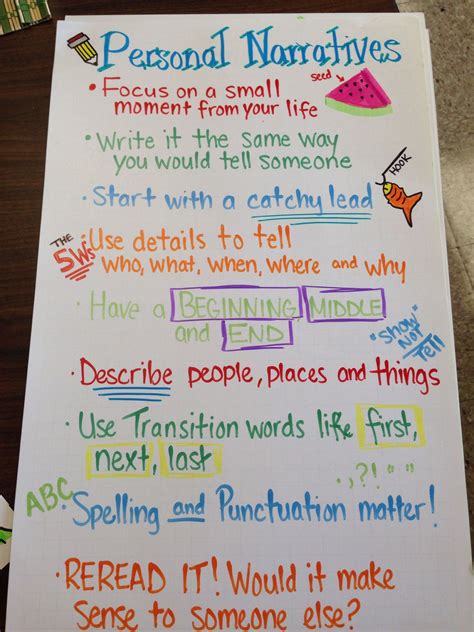 Personal Narratives
• Focus on a small
moment from your life
seed
• Write it the same way
you would tell someone
HOOK
• Start with a catchy lead
THE
5Ws
• Use details to tell
who, what, when, where and why
• Have a BEGINNING, MIDDLE
and END
"Show
NOT
Tell"
• Describe people, places and things
• Use Transition words like first,
next, last
. , ? ! " "
ABC
• Spelling and Punctuation matter!
• REREAD IT! Would it make
sense to someone else?